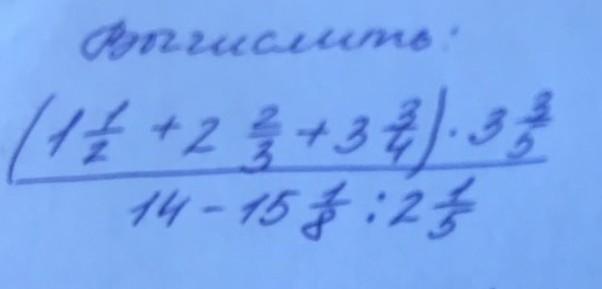 Вычислить:
(1 1/2 + 2 2/3 + 3 3/4) · 3 3/5
14 - 15 1/8 : 2 1/5